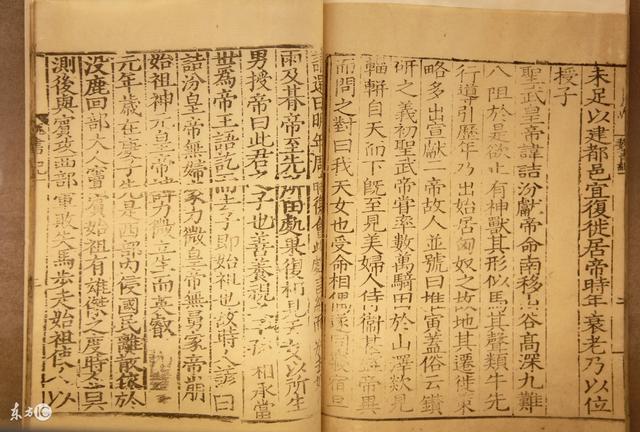 未足以建都邑宜復徙居帝時年衰老乃以位
授子
聖武皇帝諱詰汾獻帝命南移山谷高深九難
八阻於是欲止有神獸其形似馬其聲類牛先
行導引歷年乃出始居匈奴之故地其遷徙策
略多出宣獻二帝故人並號曰推寅蓋俗云鑽
研之義初聖武帝嘗率數萬騎田於山澤欻見
輜軿自天而下既至見美婦人侍衛甚盛帝異
而問之對曰我天女也受命相偶遂同寢宿旦
請還曰明年周時復會此處言終而
雨及朞帝至先所田處果復相見天女以所生
男授帝曰此君之子也善養視之子孫相承當
世為帝王語訖而去子即始祖也故時人諺曰
詰汾皇帝無婦家力微皇帝無舅家帝崩
始祖神元皇帝諱力微立生而英叡
元年歲在庚子先是西部內侵國民離散依於
沒鹿回部大人竇賓始祖有雄傑之度時人莫
測後與賓攻西部軍敗失馬步走始祖使人以
東方IC